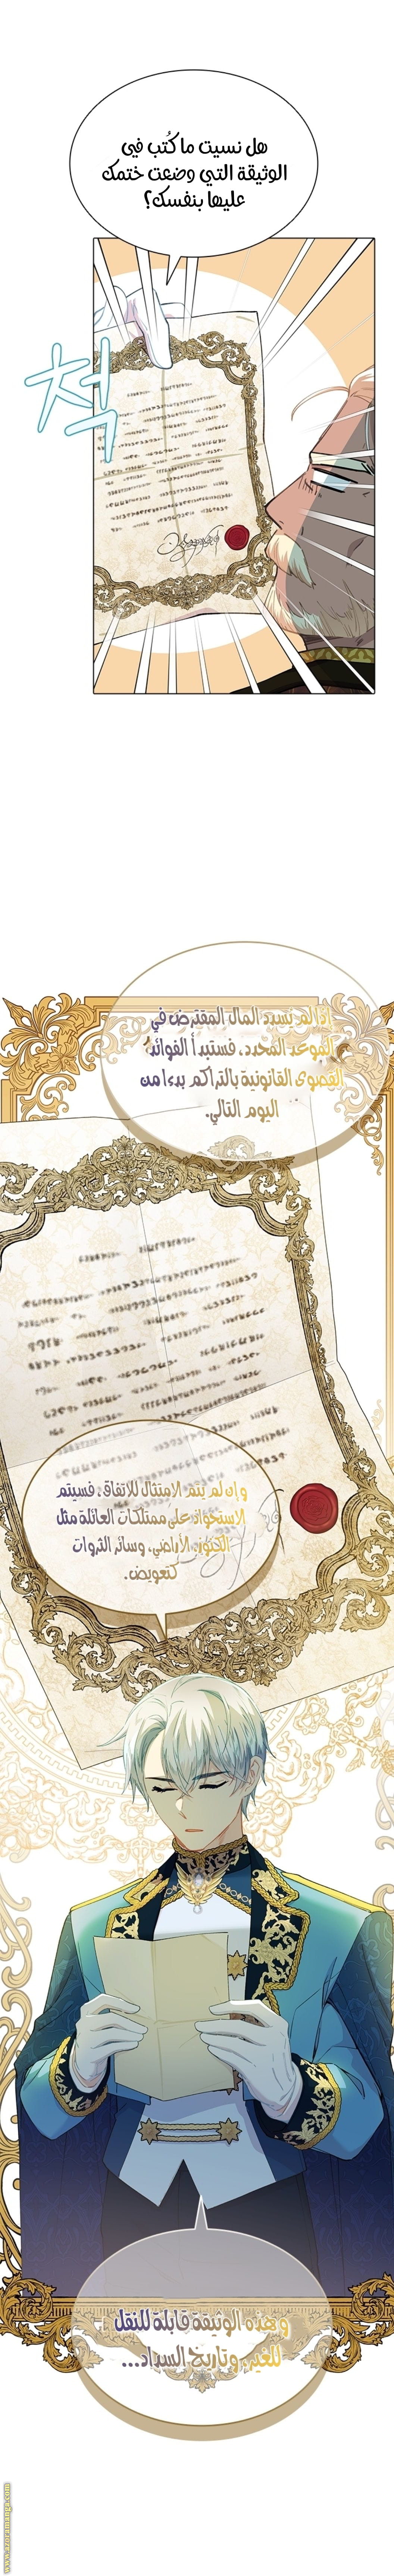 هل نسيت ما كُتب في
الوثيقة التي وضعت ختمك
عليها بنفسك؟
척
إذا لم يسدد المال المقترض في
الموعد المحدد، فستبدأ الفوائد
القصوى القانونية بالتراكم بدءا من
اليوم التالي.
وإن لم يتم الامتثال للاتفاق، فسيتم
الاستحواذ على ممتلكات العائلة مثل
الكنوز، الأراضي، وسائر الثروات
كتعويض.
وهذه الوثيقة قابلة للنقل
للغير، وتاريخ السداد...